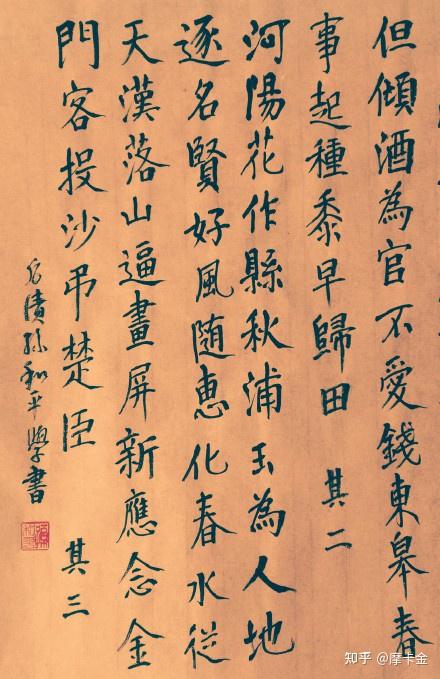 但傾酒為官不愛錢東皋春
事起種黍早歸田 其二
河陽花作縣秋浦玉為人地
逐名賢好風随惠化春水從
天漢落山逼畫屏新應念金
門客投沙吊楚臣 其三
孫和平學書
知乎 @摩卡金